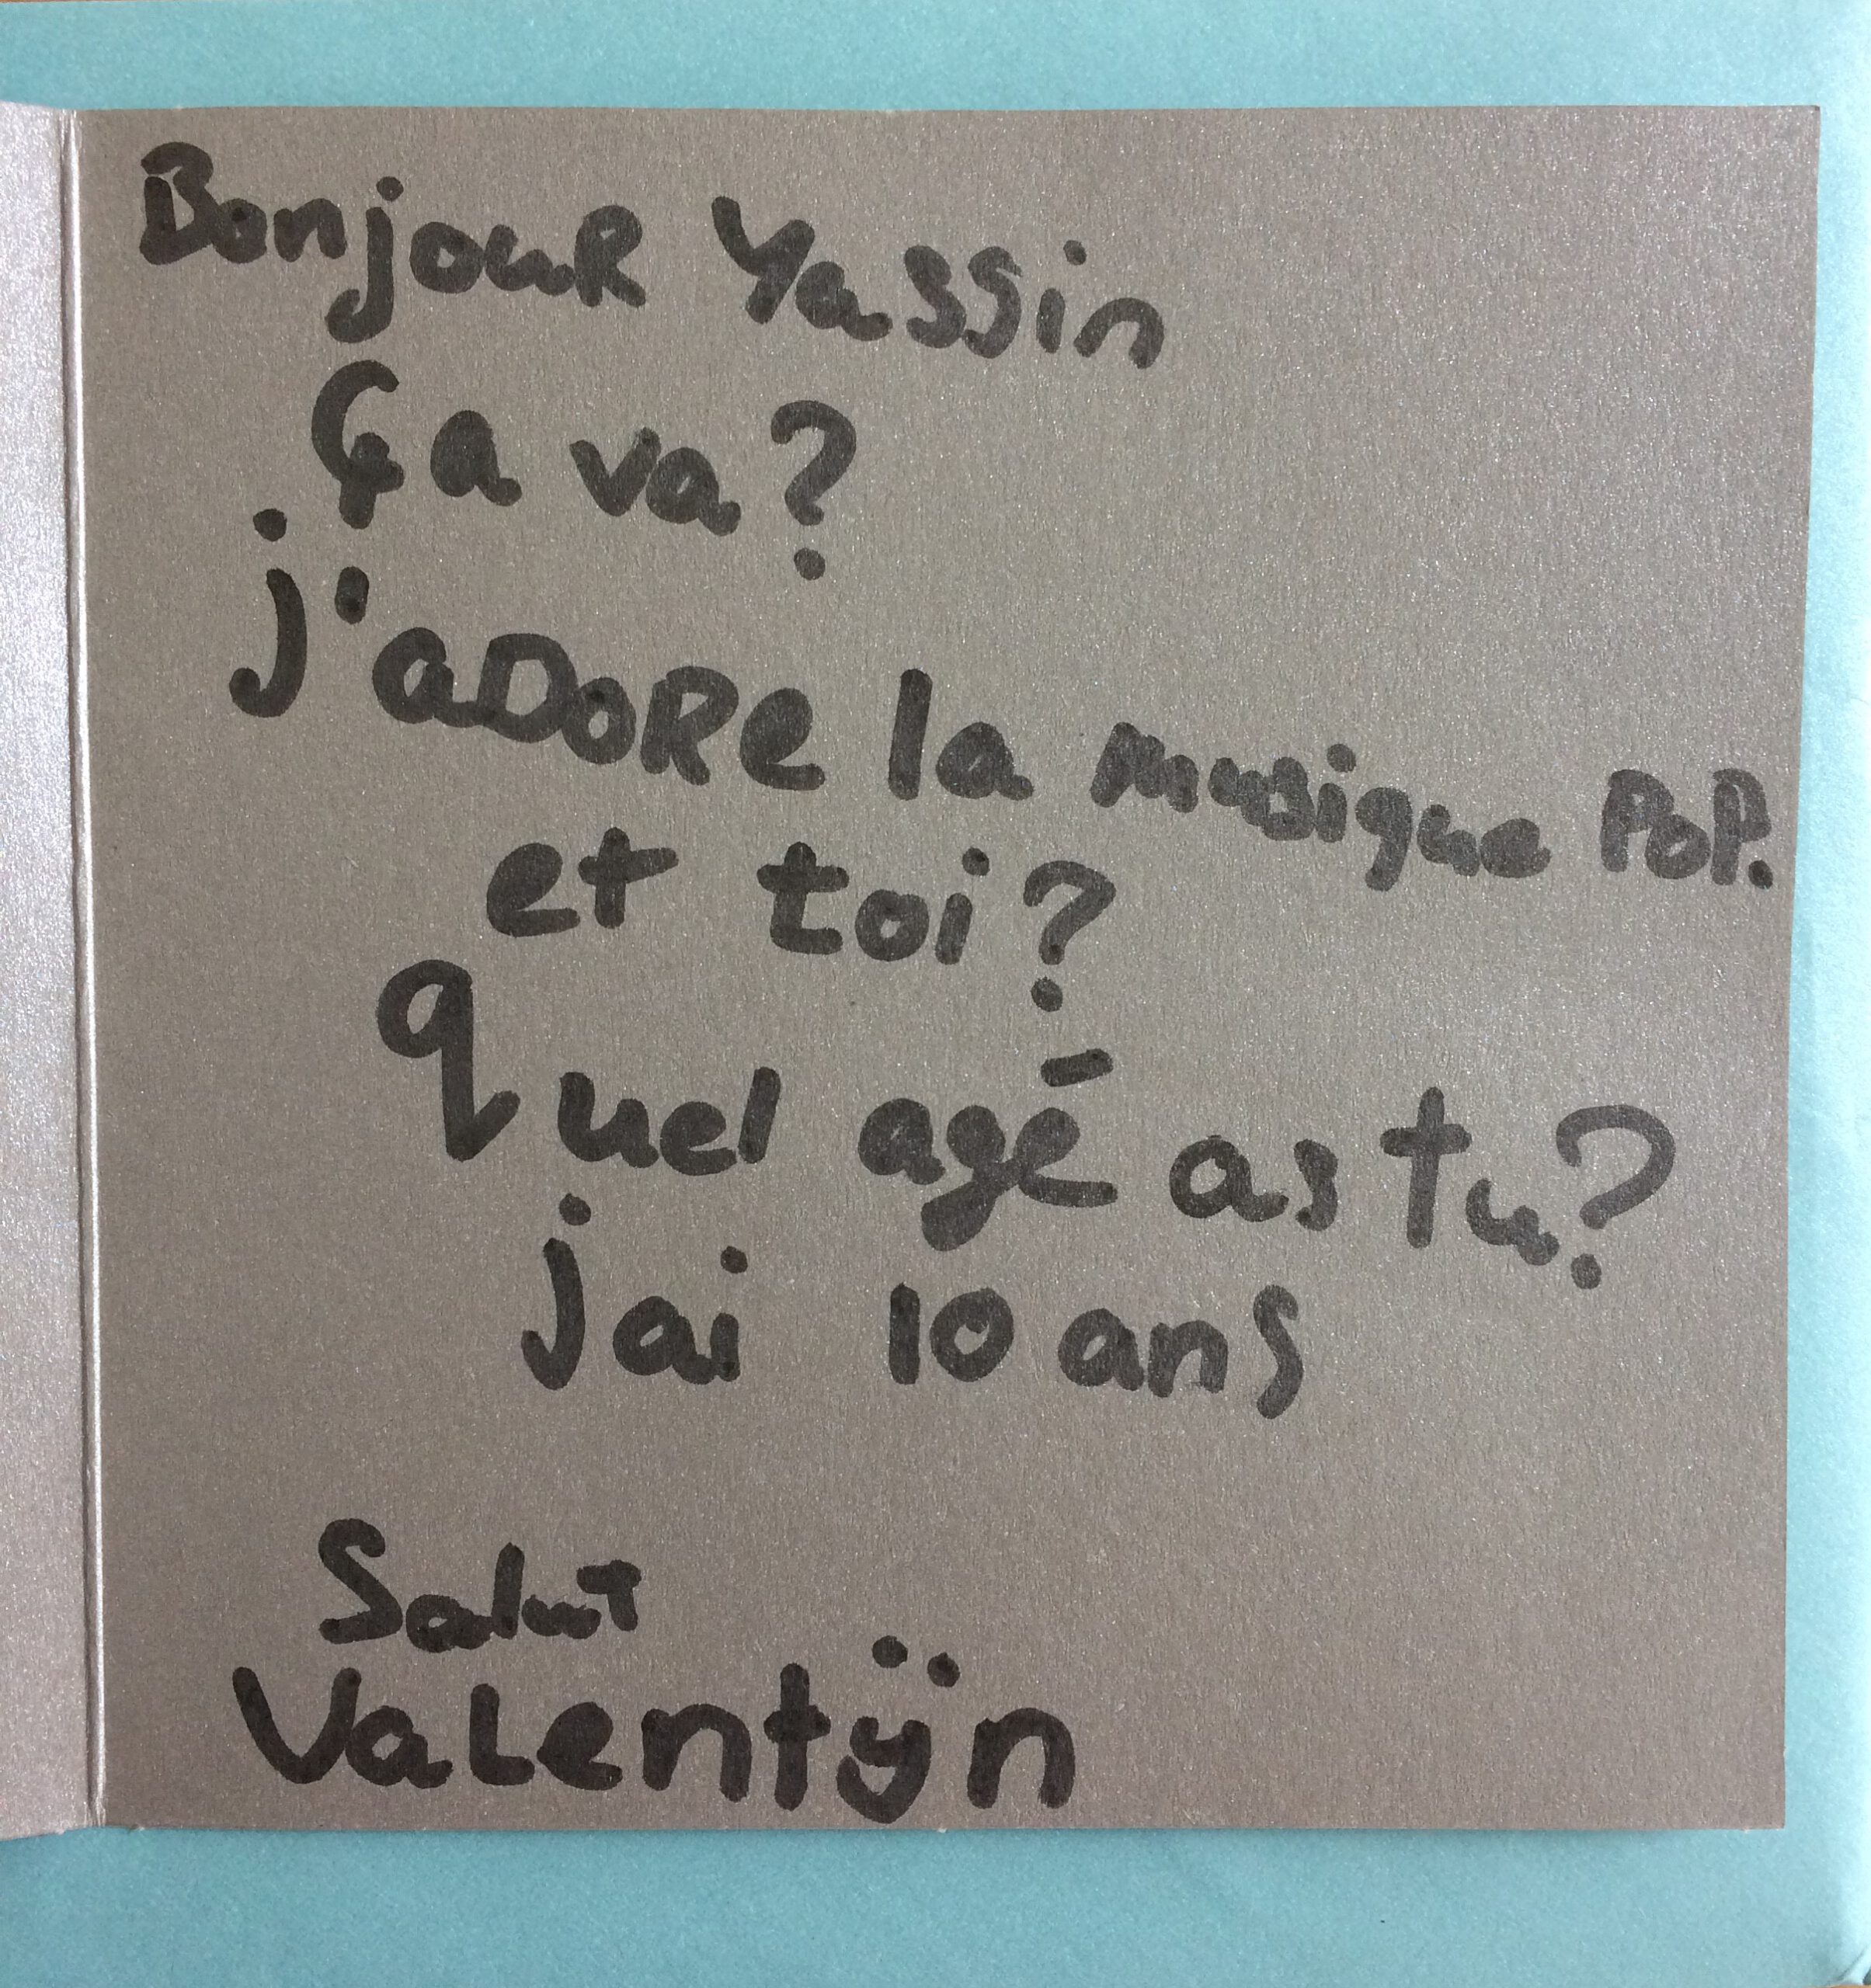 Bonjour Yassin
Ça va?
j'aDoRe la musique PoP.
et toi?
quel agé as tu?
jai 10 ans
Salut
Valentÿn